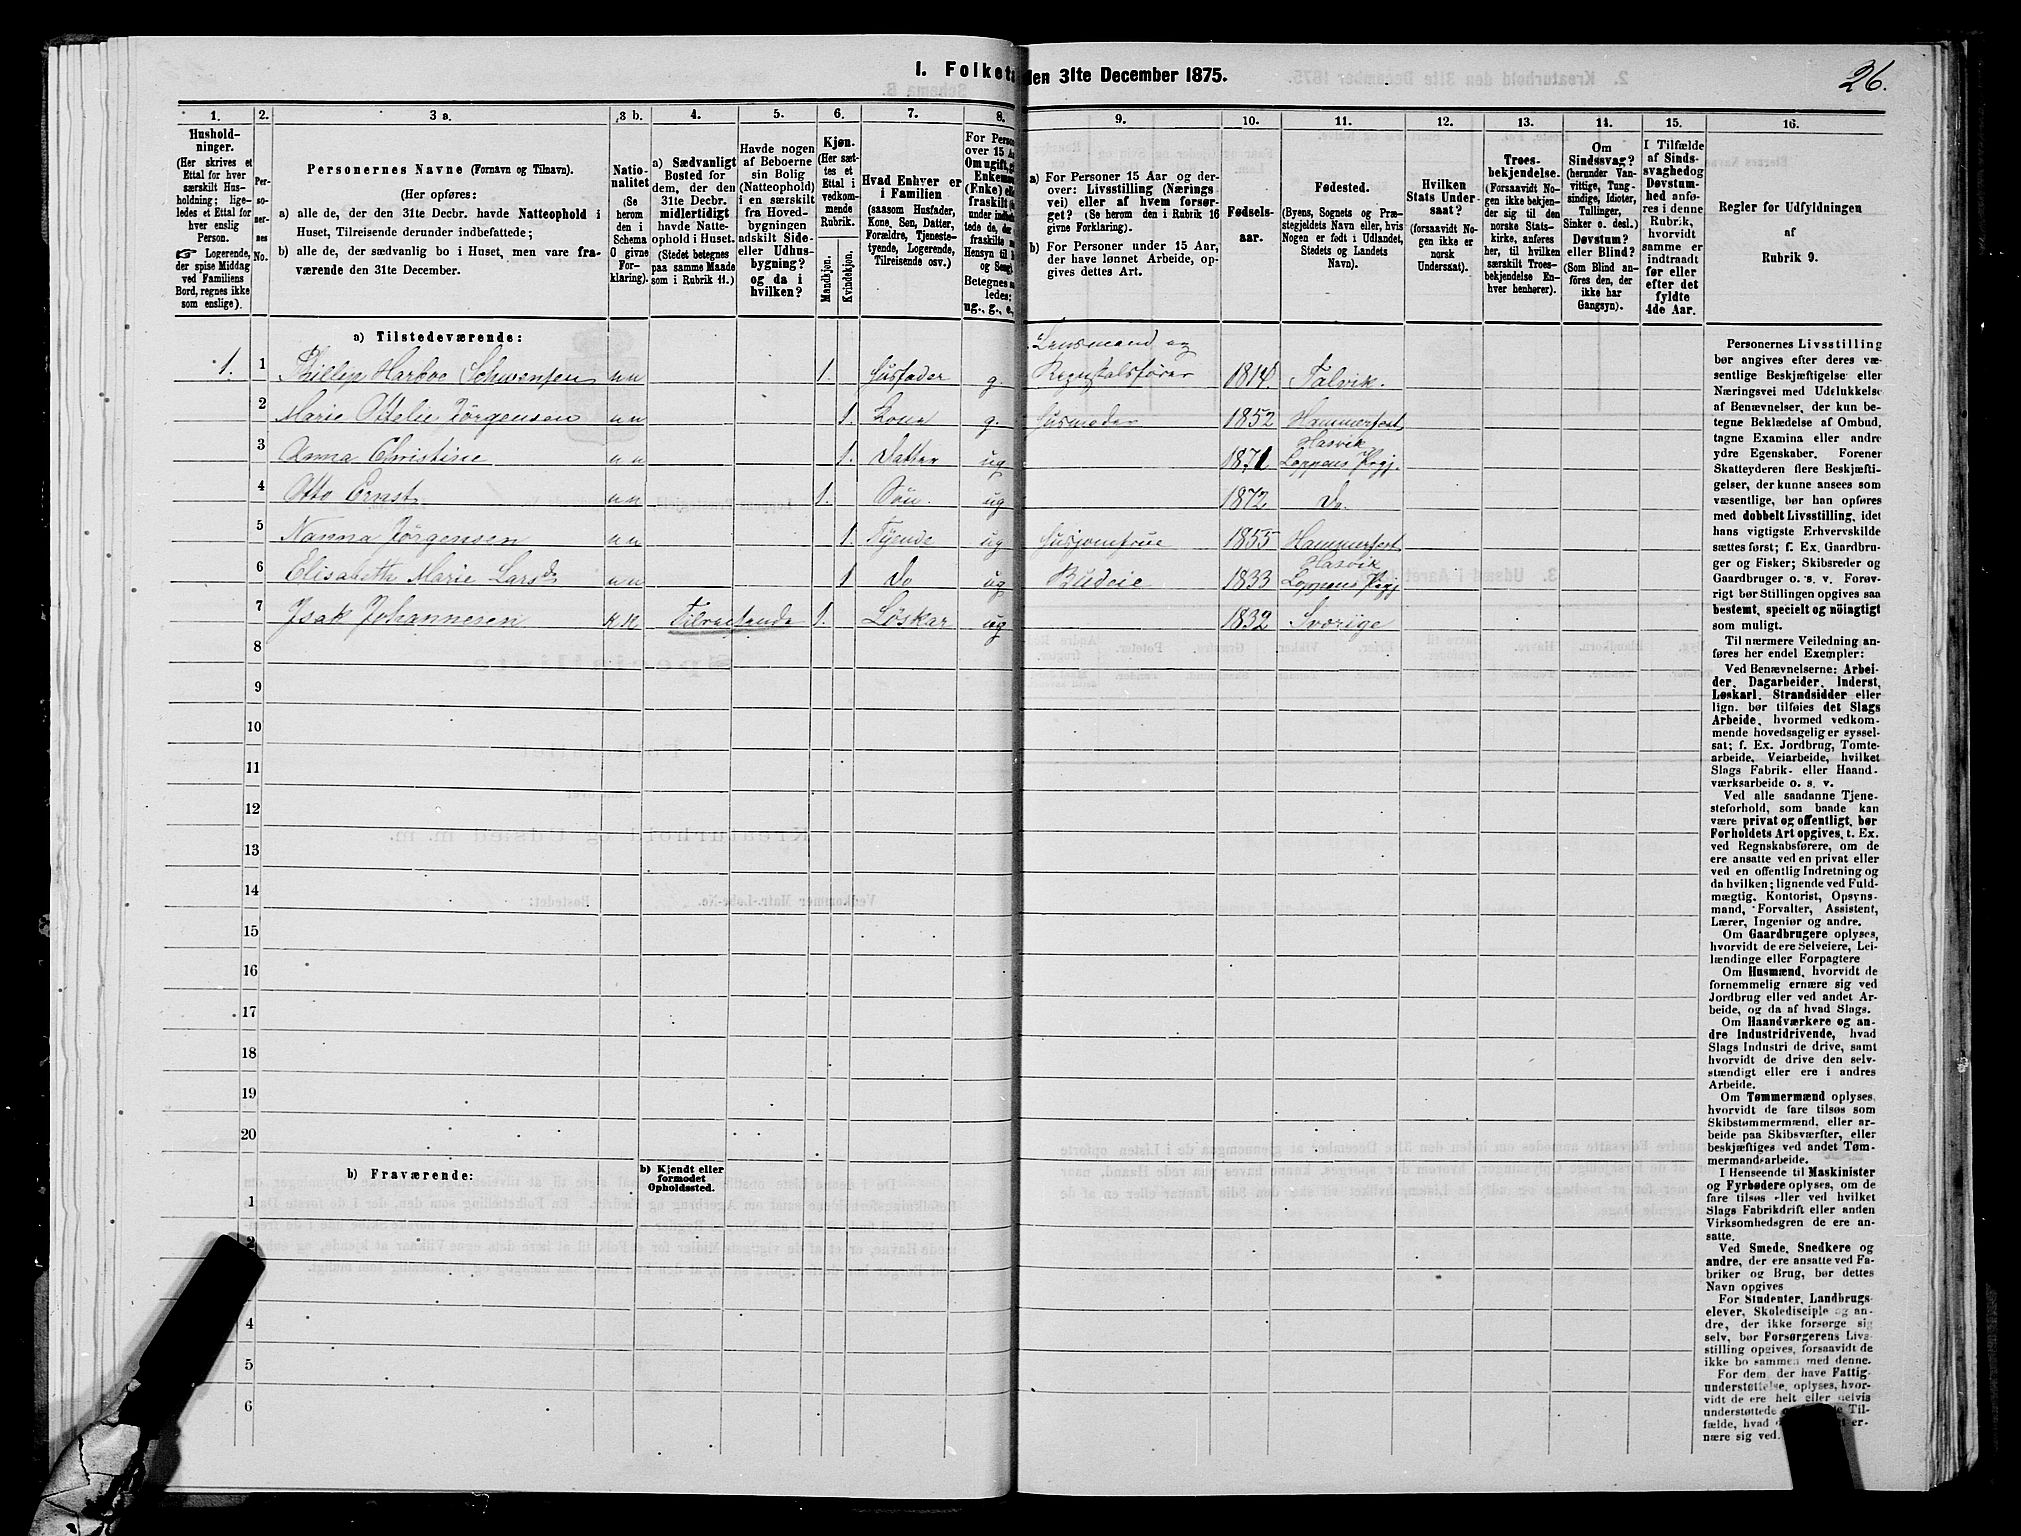 I. Folket
den 31te December 1875.
26.
1.
2.
3 a.
3 b.
4.
5.
6.
7.
8.
9.
10.
11.
12.
13.
14.
15.
16.
Hushold-
ninger.
(Her skrives et
Ettal for hver
særskilt Hus-
holdning; lige-
ledes et Ettal for
hver enslig
Person.
☞ Logerende,
der spise Middag
ved Familiens
Bord, regnes ikke
som enslige).
Per-
so-
ner-
nes
No.
Personernes Navne (Fornavn og Tilnavn).
(Her opføres:
a) alle de, der den 31te Decbr. havde Natteophold i
Huset, Tilreisende derunder indbefattede;
b) alle de, der sædvanlig bo i Huset, men vare fra-
værende den 31te December.
Natio-
nalitet
(Se
herom
den i
Schema
O givne
For-
klaring).
a) Sædvanligt
Bosted for
dem, der den
31te Decbr.
midlertidigt
havde Natte-
ophold i Huset.
(Stedet betegnes
paa samme Maade
som i Rubrik 11.)
Havde nogen
af Beboerne
sin Bolig
(Natteophold)
i en særskilt
fra Hoved-
bygningen
adskilt Side-
eller Udhus-
bygning?
og da i
hvilken?
Kjøn.
(Her sæt-
tes et
Ettal i
vedkom-
mende
Rubrik.
Mandkjøn.
Kvindekjøn.
Hvad Enhver er
i Familien
(saasom Husfader,
Kone, Søn, Datter,
Forældre, Tjeneste-
tyende, Logerende,
Tilreisende osv.).
For Perso
over 15 Aa
Om ugift, g
Enkema
(Enke) ell
fraskilt (
under indb
tede de, der
fraskilte
Hensyn til
og Seng)
Betegnes
ledes:
ug., g., e.,
a) For Personer 15 Aar og der-
over: Livsstilling (Nærings
vei) eller af hvem forsør-
get? (Se herom den i Rubrik 16
givne Forklaring).
b) For Personer under 15 Aar,
der have lønnet Arbeide, op-
gives dettes Art.
Fødsels-
aar.
Fødested.
(Byens, Sognets og Præ-
stegjeldets Navn eller, hvis
Nogen er født i Udlandet,
Stedets og Landets
Navn).
Hvilken
Stats Under-
saat?
(forsaavidt No-
gen ikke er
norsk
Undersaat).
Troes-
bekjendelse.
(Forsaavidt No-
gen ikke bekjen-
der sig til den
norske Stats-
kirke, anføres
her, til hvilken
særskilt Troes-
bekjendelse En-
hver henhører).
Om
Sindssvag?
(herunder Van-
vittige, Tung-
sindige, Idioter,
Tullinger,
Sinker o. desl.)
Døvstum?
eller Blind?
(Som Blind an-
føres den, der
ikke har
Gangsyn).
I Tilfælde
af Sinds-
svaghed og
Døvstum-
hed anfø-
res i denne
Rubrik,
hvorvidt
samme er
indtraadt
før eller
efter det
fyldte
4de Aar.
Regler for Udfyldningen
af
Rubrik 9.
a) Tilstedeværende:
1. 1 Phillip Harboe Schwensen n n 1. Husfader g. Lensmand og Regnskabsfører 1814 Talvik.
2 Marie Ottelie Jørgensen n n 1. Kone g. Husmoder 1852 Hammerfest
3 Anna Christine n n 1. Datter ug 1871 Hasvik Loppens Prgj.
4 Otto Ernst n n 1. Søn. ug 1872 Do.
5 Nanna Jørgensen n n 1. Tyende ug Husjomfrue 1855 Hammerfest
6 Elisabeth Marie Larsd n n 1 Do ug Budeie 1833 Hasvik Loppens Prgj
7 Isak Johannesen Tilreisende 1. Løskar ug 1832 Sverige
8
9
10
11
12
13
14
15
16
17
18
19
20
b) Fraværende:
b) Kjendt eller
formodet
Opholdssted.
1
2
4
5
6
Personernes Livsstilling
bør angives efter deres væ-
sentlige Beskjæftigelse eller
Næringsvei med Udelukkelse
af Benævnelser, der kun be-
tegne Beklædelse af Ombud,
tagne Examina eller andre
ydre Egenskaber. Forener
Skatteyderen flere Beskjæfti-
gelser, der kunne ansees som
væsentlige, bør han opføres
med dobbelt Livsstilling, idet
hans vigtigste Erhvervskilde
sættes først; f. Ex. Gaardbru-
ger og Fisker; Skibsreder og
Gaardbruger o. s. v. Forøv-
rigt bør Stillingen opgives saa
bestemt, specielt og nöiagtigt
som muligt.
Til nærmere Veiledning an-
føres her endel Exempler:
Ved Benævnelserne: Arbei-
der, Dagarbeider, Inderst,
Løskarl, Strandsidder eller
lign. bør tilføies det Slags
Arbeide, hvormed vedkom-
mende hovedsagelig er syssel-
sat; f. Ex. Jordbrug, Tomte-
arbeide, Veiarbeide, hvilket
Slags Fabrik- eller Haand-
værksarbeide o. s. v.
Ved alle saadanne Tjene-
steforhold, som baade kan
være privat og offentligt, bør
Forholdets Art opgives, t. Ex.
ved Regnskabsførere, om de
ere ansatte ved en privat eller
ved en offentlig Indretning og
da hvilken; lignende ved Fuld-
mægtig, Kontorist, Opsyns-
mand, Forvalter, Assistent,
Lærer, Ingeniør og andre.
Om Gaardbrugere oplyses,
hvorvidt de ere Selveiere, Lei-
lændinge eller Forpagtere
Om Husmænd, hvorvidt de
fornemmelig ernære sig ved
Jordbrug eller ved andet Ar-
beide, og da af hvad Slags.
Om Haandværkere og an-
dre Industridrivende, hvad
Slags Industri de drive, samt
hvorvidt de drive den selv-
stændigt eller ere i andres
Arbeide.
Om Tømmermænd oplyses,
hvorvidt de fare tilsøs som
Skibstømmermænd, eller ar-
beide paa Skibsværfter, eller
beskjæftiges ved andet Tøm-
mermandsarbeide.
I Henseende til Maskinister
og Fyrbødere oplyses, om de
fare tilsøs eller ved hvilket
Slags Fabrikdrift eller anden
Virksomhedsgren de ere an-
satte.
Ved Smede, Snedkere og
andre, der ere ansatte ved Fa-
briker og Brug, bør dettes
Navn opgives
For Studenter, Landbrugs-
elever, Skoledisciple og an-
dre, der ikke forsørge sig
selv, bør Forsørgerens Livs-
stilling opgives, forsaavidt de
ikke bo sammen med denne.
For dem, der have Fattig-
understøttelse, oplyses, hvor-
vidt de ere helt eller delvis
understøttede
Til-
fælde, hvad
er-
nære sig ved.